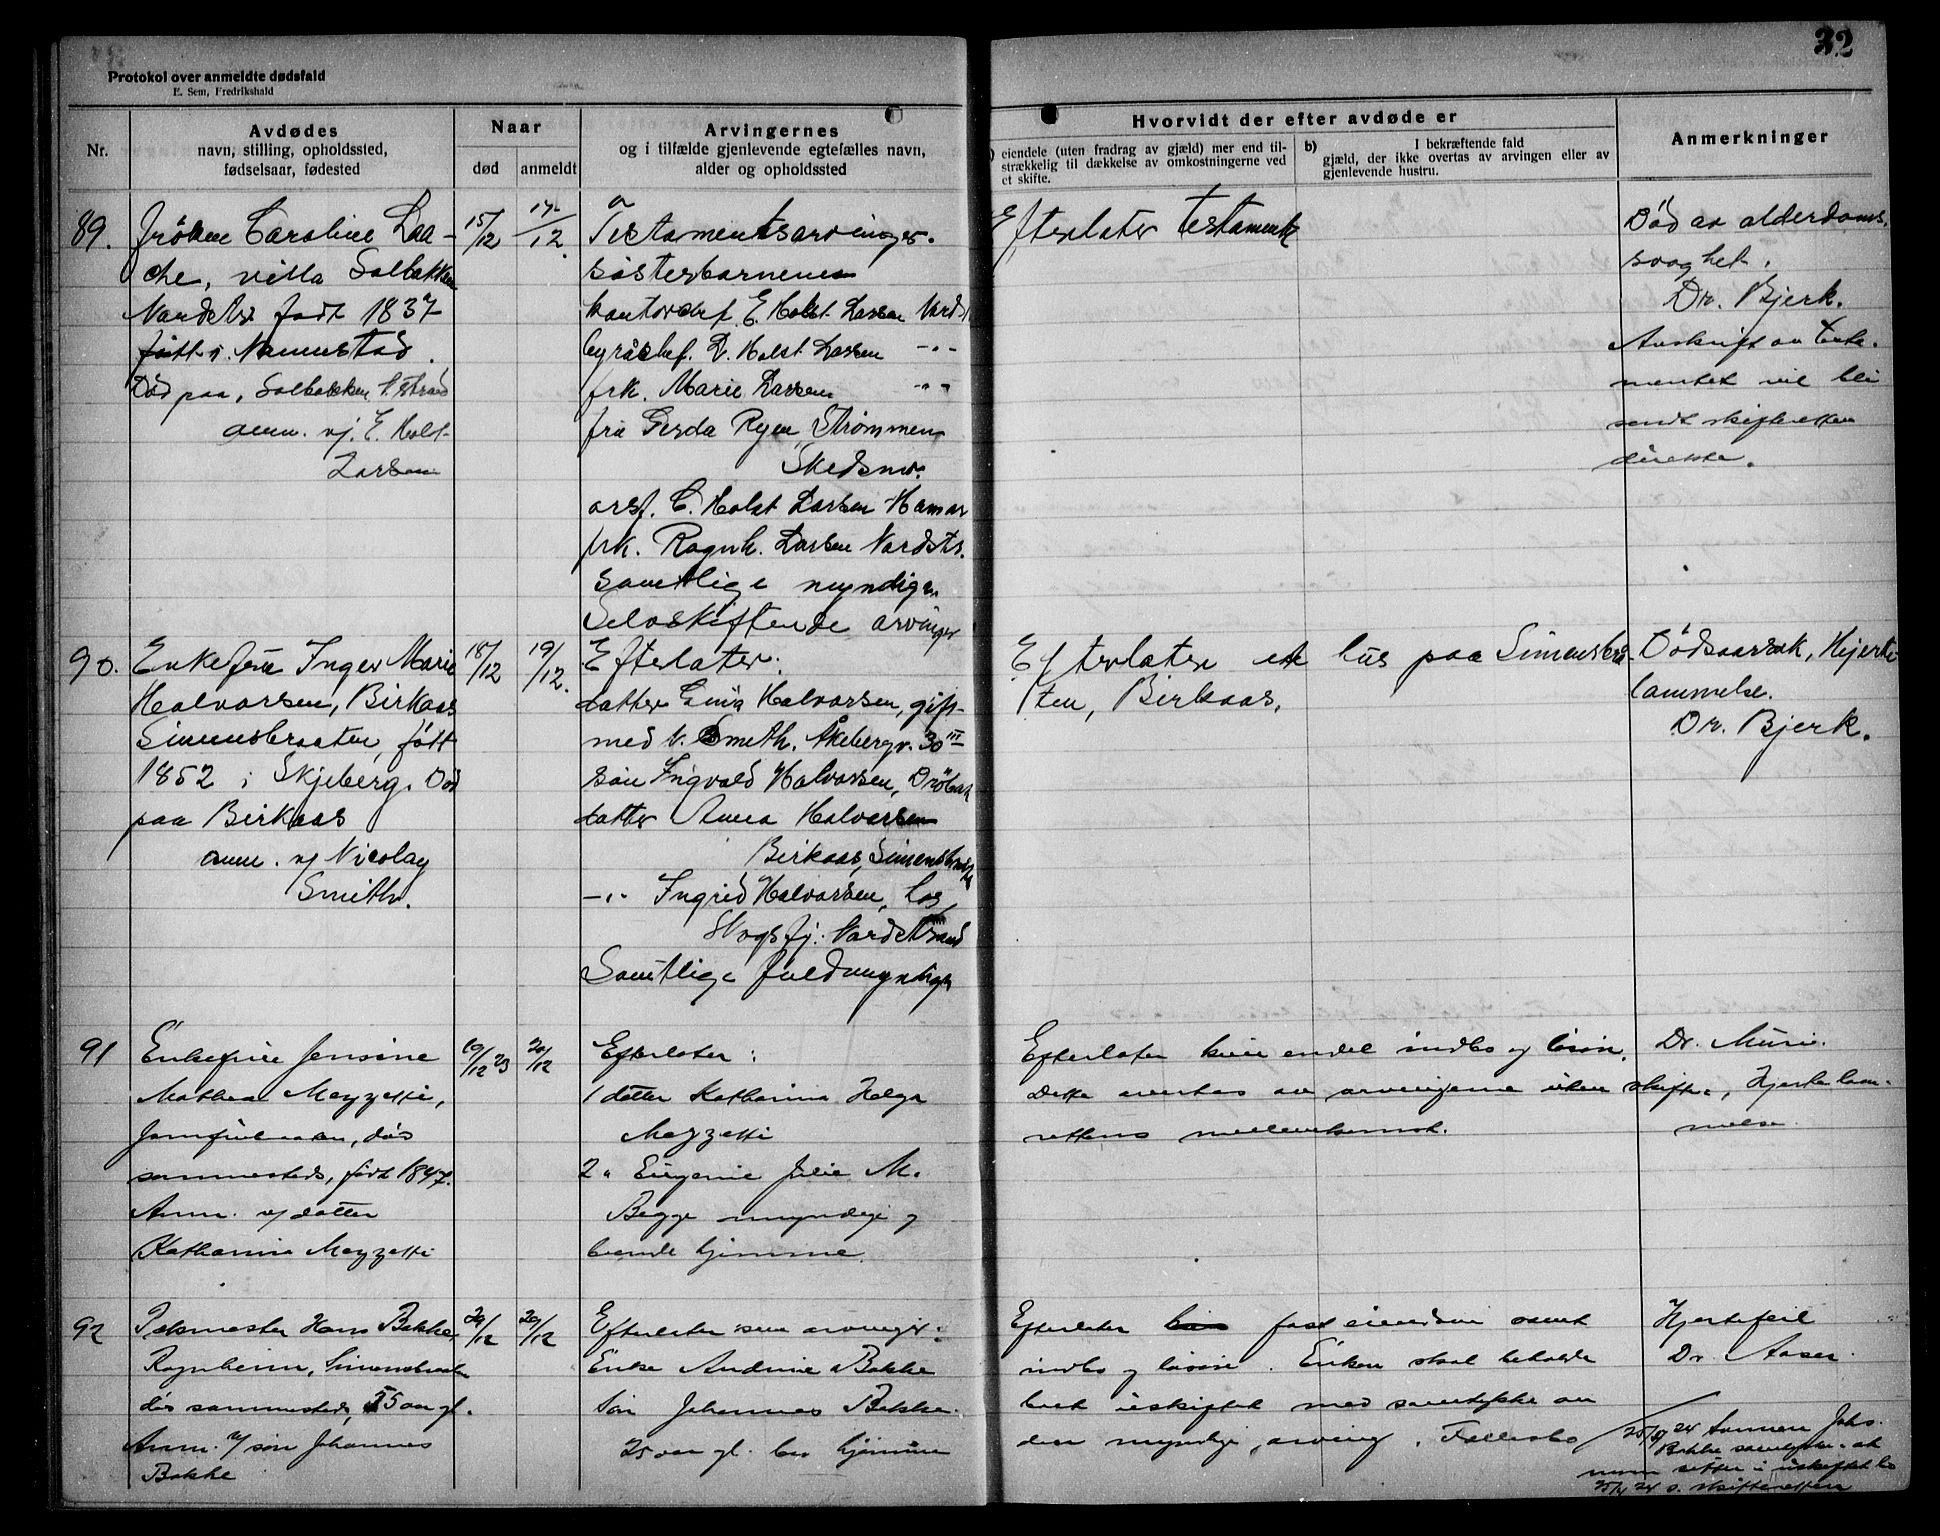 32
Protokol over anmeldte dødsfald
E. Sem, Fredrikshald
Nr.
Avdødes
navn, stilling, opholdssted,
fødselsaar, fødested
Naar
død
anmeldt
Arvingernes
og i tilfælde gjenlevende egtefælles navn,
alder og opholdssted
Hvorvidt der efter avdøde er
) eiendele (uten fradrag av gjæld) mer end til-
strækkelig til dækkelse av omkostningerne ved
et skifte.
b) I bekræftende fald
gjæld, der ikke overtas av arvingen eller av
gjenlevende hustru.
Anmerkninger
89.
Frøken Caroline Laa-
che, villa Solbakken
Nordstr født 1837
født i Namsstad.
Død paa, Solbakken
anm. v/ E. Holst-
Larsen
15/12
17/12.
Testamentsarvinger.
Søsterbarnene
kontorchef E. Holst Larsen Nordst
byråchef. L. Holst Larsen -"-
frk. Marie Larsen -"-
fru Gerda Ryen Strømmen
Skedsmo.
C. Holst Larsen Hamar
frk. Ragnh. Larsen Nordstr.
Samtlige myndige.
Selvskiftende arvinger
Efterlater testament
Død av alderdoms-
svaghet.
Dr. Bjerk.
Avskrift av testa-
mentet vil bli
sendt skifteretten
direkte.
90.
Enkefru Inger Marie
Halvorsen, Birkaas
Simensbraaten, født
1852 i Skjeberg. Død
paa Birkaas
anm. v/ Nicolay
Smith.
18/12
19/12.
Efterlater:
datter Halvorsen, gift
med N. Smith, Åkebergv. 30 III
søn Ingvald Halvorsen, Drøbak
datter Anna Halvorsen
Birkaas, Simensbraaten
-"- Ingrid Halvorsen,
Nordstrand
Samtlige fuldmyndige
Efterlater et hus paa Simensbraa-
ten, Birkaas.
Dødsaarsak, Hjerte-
lammelse.
Dr. Bjerk.
91
Enkefrue Jensine
Mathea Mazzetti,
Jomfrubraaten, død
sammesteds, født 1847.
Anm. v/ datter
Katharina Mazzetti
19/12 23
20/12
Efterlater:
1 datter Katharina Helga
Mazzetti
2 " Eugenie Julie M.
Begge myndige og
boende hjemme.
Efterlater kun endel indbo og løsøre.
Dette overtas av arvingerne uten skifte-
rettens mellemkomst.
Dr. Muni.
Hjertelam-
melse.
92
Hans Bakke,
Ragnheim, Simensbraaten
død sammesteds, 55 aar gl.
Anm. v/ søn Johannes
Bakke
29/12
29/12
Efterlater som arvinger:
Enke Andrine Bakke
Søn Johannes Bakke.
25 aar gl. bor hjemme
Efterlater fast eiendom samt
indbo og løsøre. Enken skal beholde
boet uskiftet med samtykke av
den myndige arving. Fellesbo
Hjertefeil
Dr. Aaser.
24 Sønnen Johs.
Bakke samtykker at
mor sitter i uskiftet bo
24 s. skifteretten